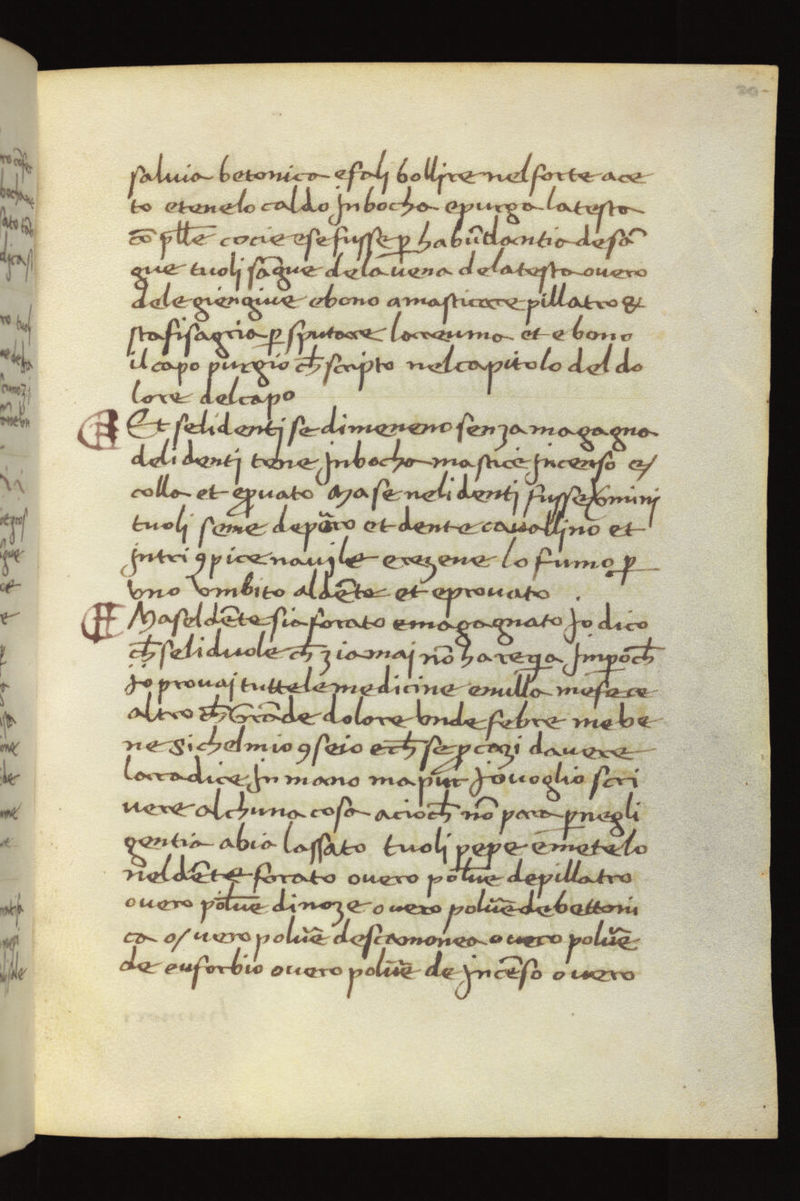 salvia betonica e fali bollire nel forte ace
to e tenelo caldo in bocha e purga la testa
cō pl̄le cocie e se fusse ꝑ habūdantia de sā
gue tuoli sāgue de la vena de la testa overo
dele giengive e bono a masticare pillatro &
stafisagria ꝑ sputare lo reuma et e bono
il capo purgio ch̄ scripto nel capitolo del do
lore del capo
Et se li denti se dimeneno senza magagna
de li denti tene in bocha mastice incenso e/
colla et e provato Ma se ne li denti fusse vermini
tuoli seme de et dente cavallino et
intri ꝯ pice navile e rezene lo fumo ꝑ
uno umbito al dēte et e provato .
Ma sel dēte sia forato e magagnato Io dico
ch̄ se li duole ch̄ ziamai nō ha requia Imꝑoch̄
Io provai tutte le medicine e nulla me fece
altro ch̄ Grāde dolore unde febre me be
ne si chel mio ꝯseio e ch̄ se ꝓcazi d avere
la radice in mano ma pur Io voglio scri
vere alchuna cosa acioch̄ nō para ꝑ negli
gentia abia lassato tuoli pepe e metelo
nel dēte forato overo polūe de pillatro
overo polūe di noze overo polūe de bettoni
ca o/ vero polūe de scamonea overo polūe
de euforbio overo polūe de incēso overo